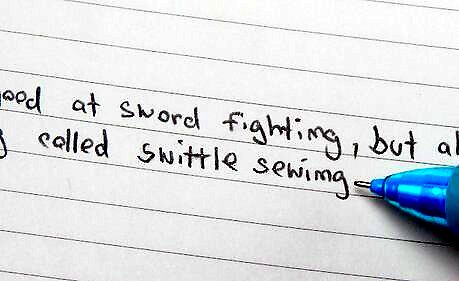 ood at sword fighting, but al
g called swittle sewing